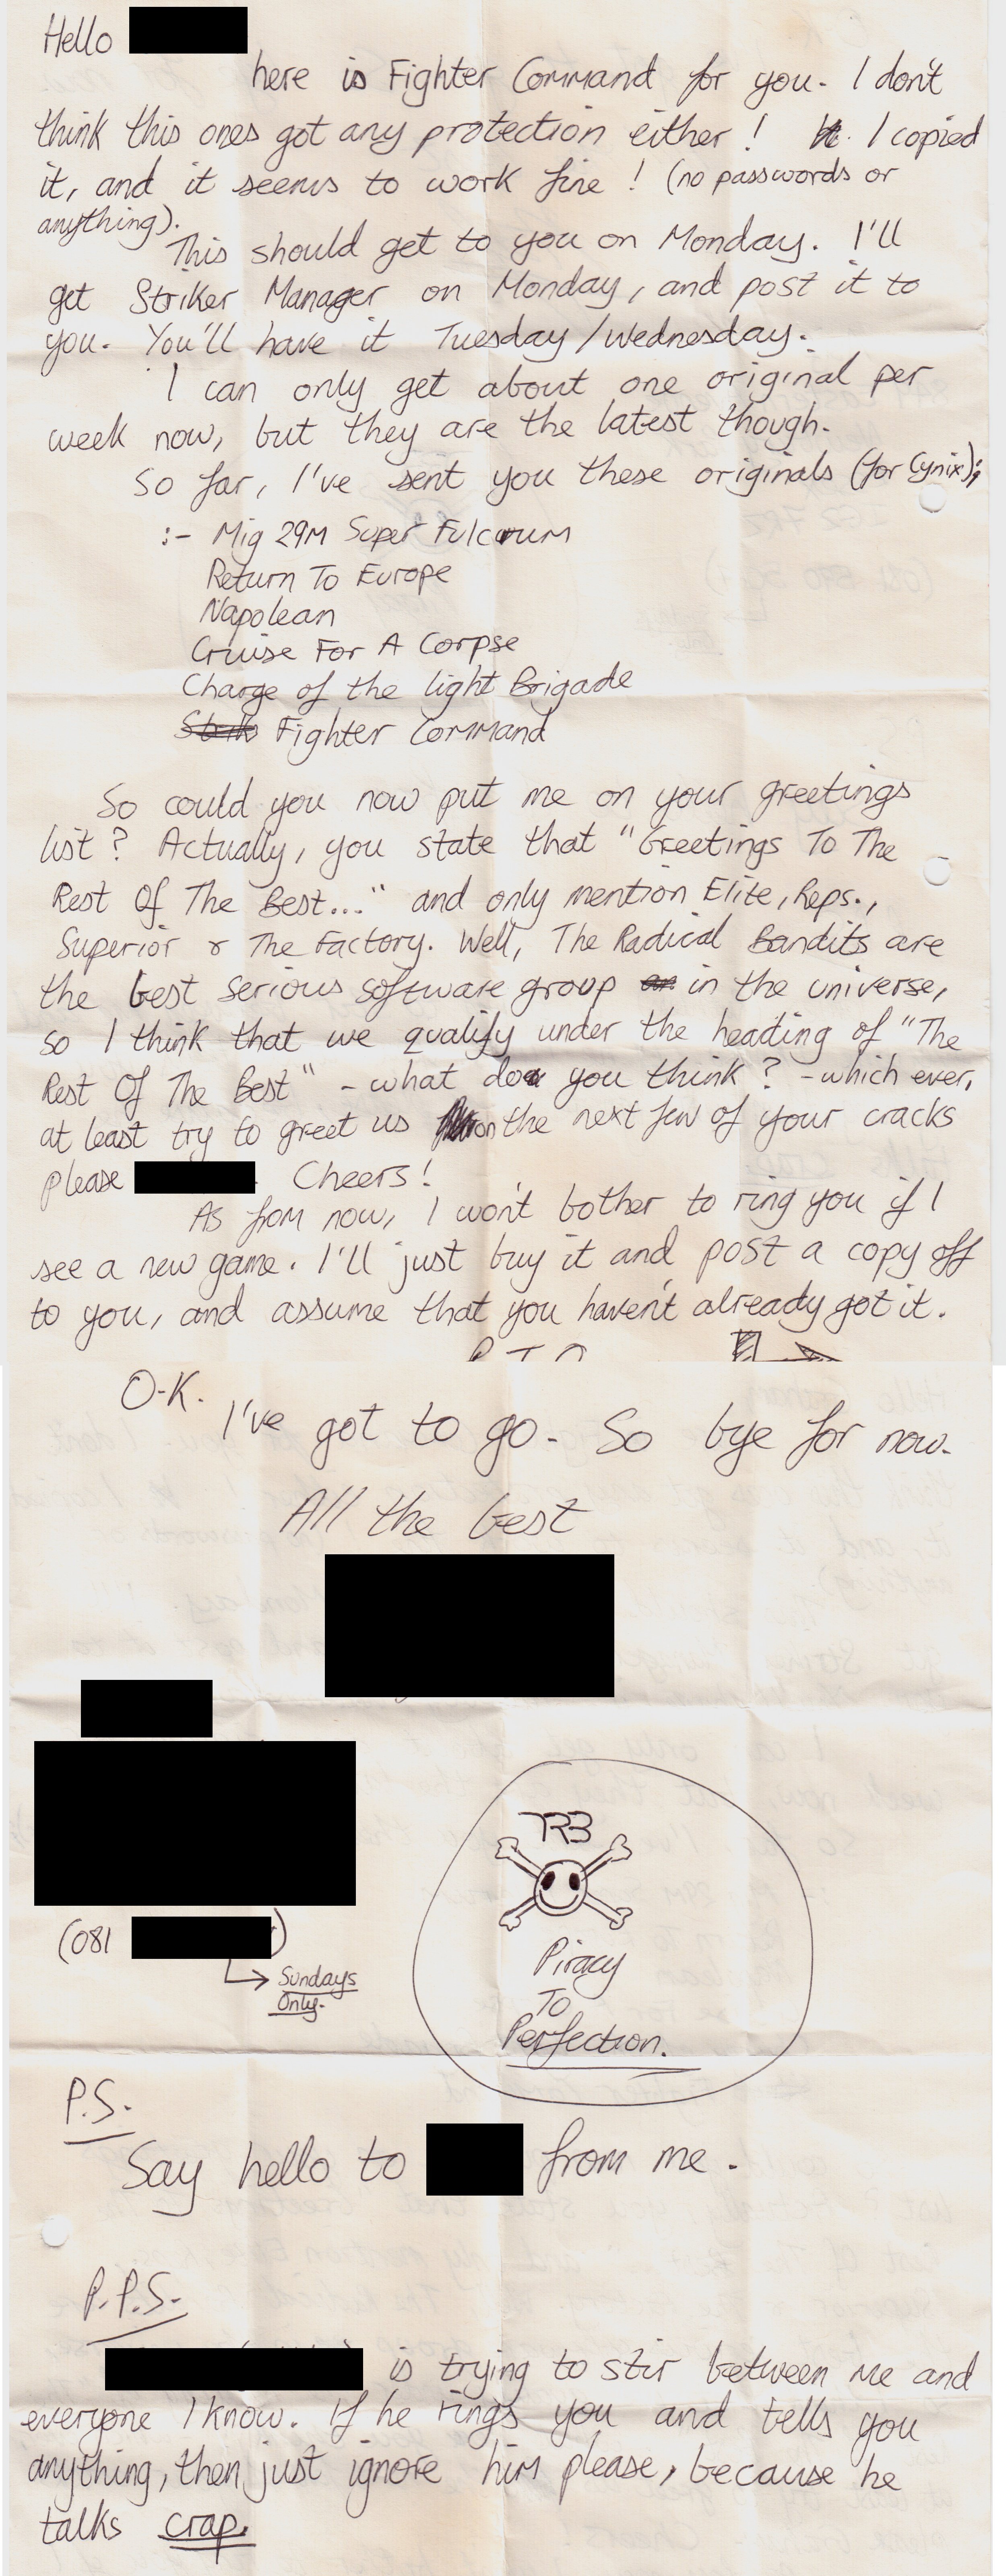 Hello
here is Fighter Command for you. I don't
think this ones got any protection either! I copied
it, and it seems to work fine! (no passwords or
anything).
This should get to you on Monday. I'll
get Striker Manager on Monday, and post it to
you. You'll have it Tuesday/Wednesday.
I can only get about one original per
week now, but they are the latest though.
So far, I've sent you these originals (for Cynix);
:- Mig 29M Super Fulcrum
Return To Europe
Napolean
Cruise For A Corpse
Charge of the light Brigade
Fighter Command
So could you now put me on your greetings
list? Actually, you state that "Greetings To The
Rest Of The Best..." and only mention Elite, Reps.,
Superior & The Factory. Well, The Radical Bandits are
the best serious software group in the universe,
so I think that we qualify under the heading of "The
Rest Of The Best" - what do you think? - which ever,
at least try to greet us on the next few of your cracks
please Cheers!
As from now, I won't bother to ring you if I
see a new game. I'll just buy it and post a copy off
to you, and assume that you haven't already got it.
P T O
O.K.
I've got to go. So bye for now.
All the best
(081 )
Sundays
Only.
TRB
Piracy
To
Perfection.
P.S.
Say hello to from me.
P.P.S.
is trying to stir between me and
everyone I know. If he rings you and tells you
anything, then just ignore him please, because he
talks crap.